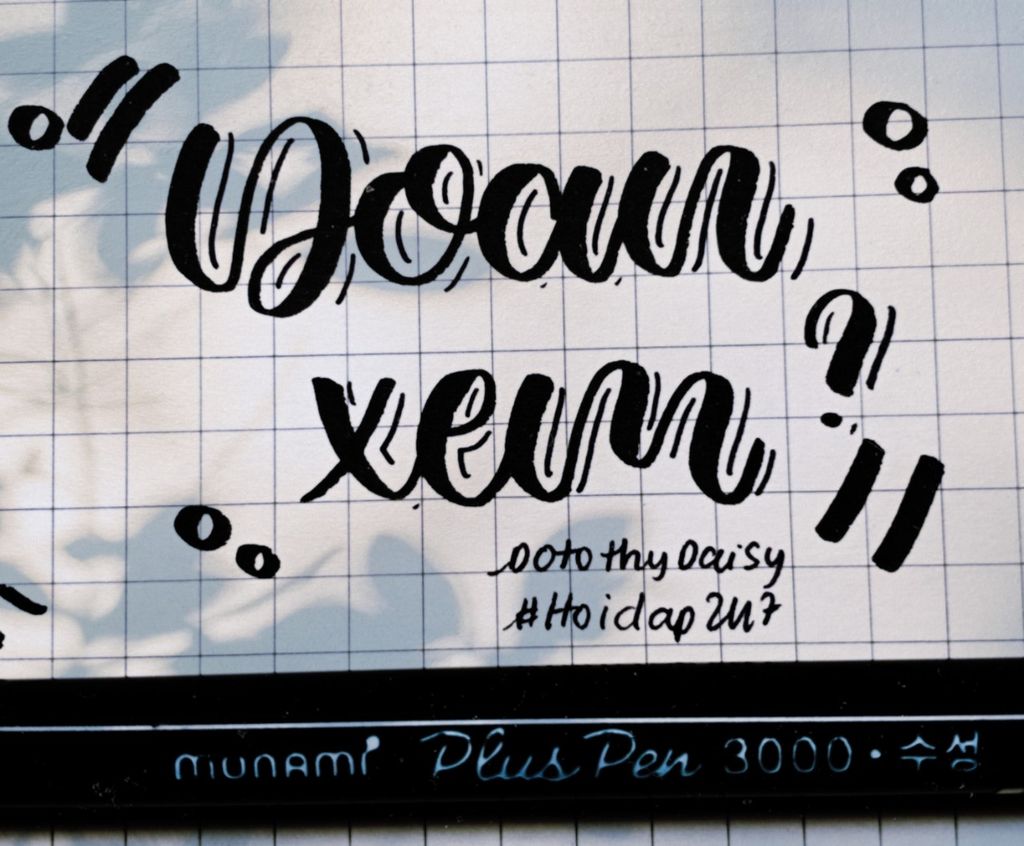 "Doan
xem?"
DotothyDaisy
#Hoidap247
monami Plus Pen 3000 · 수성